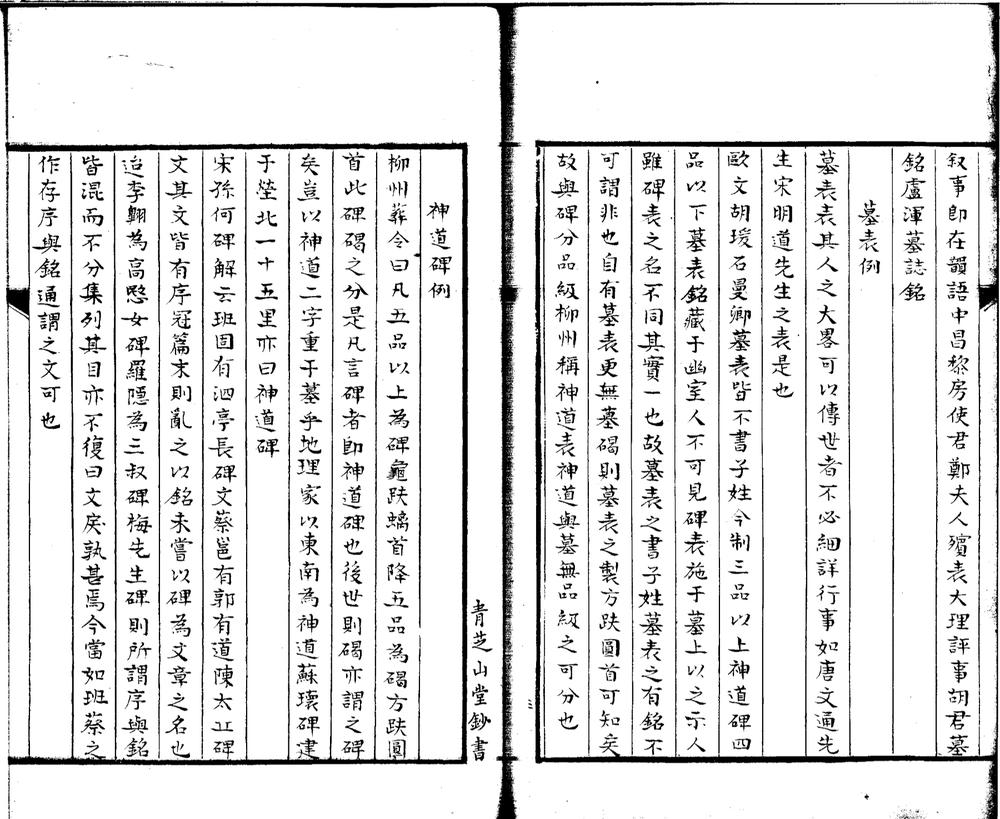 叙事即在韻語中昌黎房使君鄭夫人殯表大理評事胡君墓
銘盧渾墓誌銘
墓表例
墓表表其人之大畧可以傳世者不必細詳行事如唐文通先
生宋明道先生之表是也
歐文胡瑗石曼卿墓表皆不書子姓今制三品以上神道碑四
品以下墓表銘藏于幽室人不可見碑表施于墓上以之示人
雖碑表之名不同其實一也故墓表之書子姓墓表之有銘不
可謂非也自有墓表更無墓碣則墓表之製方趺圓首可知矣
故與碑分品級柳州稱神道表神道與墓無品級之可分也
三
青芝山堂鈔書
神道碑例
柳州葬令曰凡五品以上為碑龜趺螭首降五品為碣方趺圓
首此碑碣之分是凡言碑者即神道碑也後世則碣亦謂之碑
矣豈以神道二字重于墓乎地理家以東南為神道蘇瓌碑建
于塋北一十五里亦曰神道碑
宋孫何碑解云班固有泗亭長碑文蔡邕有郭有道陳太丘碑
文其文皆有序冠篇末則亂之以銘未嘗以碑為文章之名也
迨李翺為高愍女碑羅隱為三叔碑梅先生碑則所謂序與銘
皆混而不分集列其目亦不復曰文戾孰甚焉今當如班蔡之
作存序與銘通謂之文可也